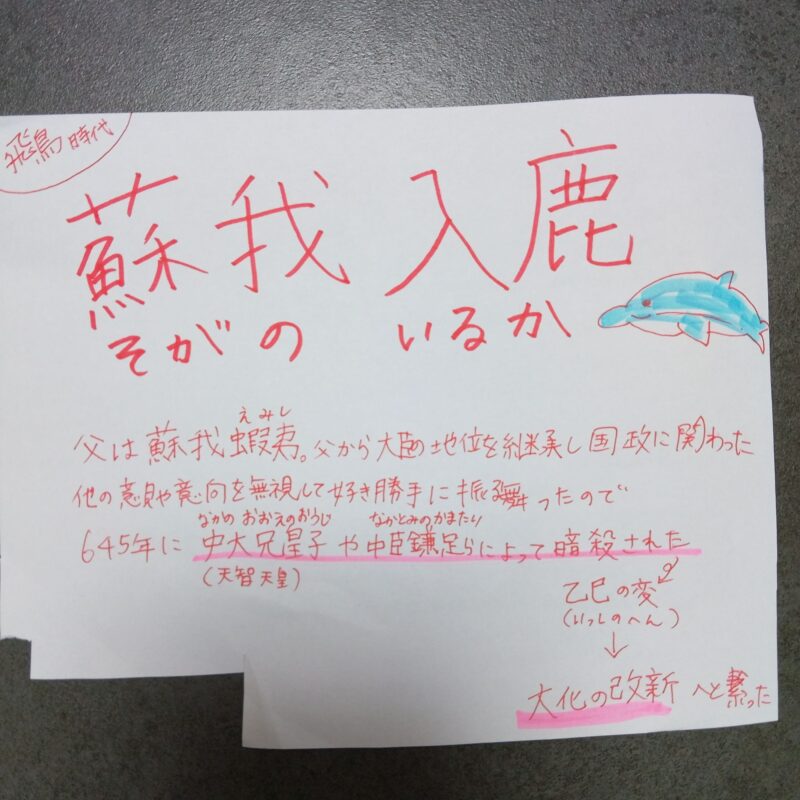 飛鳥時代
蘇我 入鹿
そがの いるか
えみし
父は蘇我蝦夷。父から大臣の地位を継承し国政に関わった
他の意見や意向を無視して好き勝手に振る舞ったので
なかの おおえのおうじ なかとみのかまたり
645年に 中大兄皇子 や中臣鎌足らによって暗殺された
(天智天皇)
乙巳の変
(いっしのへん)
↓
大化の改新 へと繋った